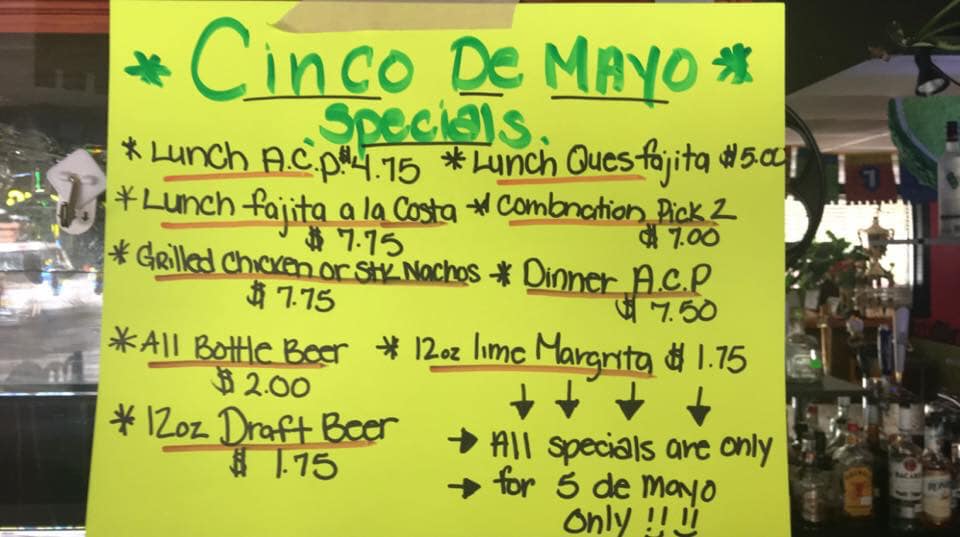 * Cinco De MAYO *
.Specials.
* Lunch A.C.P. $4.75 * Lunch Quesfajita $5.00
* Lunch fajita a la Costa * Combnation Pick 2
$ 7.75 $ 7.00
* Grilled chicken or Stk Nachos * Dinner A.C.P
$ 7.75 $ 7.50
* All Bottle Beer * 12oz lime Margrita $ 1.75
$ 2.00
* 12oz Draft Beer
$ 1.75
→ All specials are only
→ for 5 de mayo
only !! !!
7
BACARDI